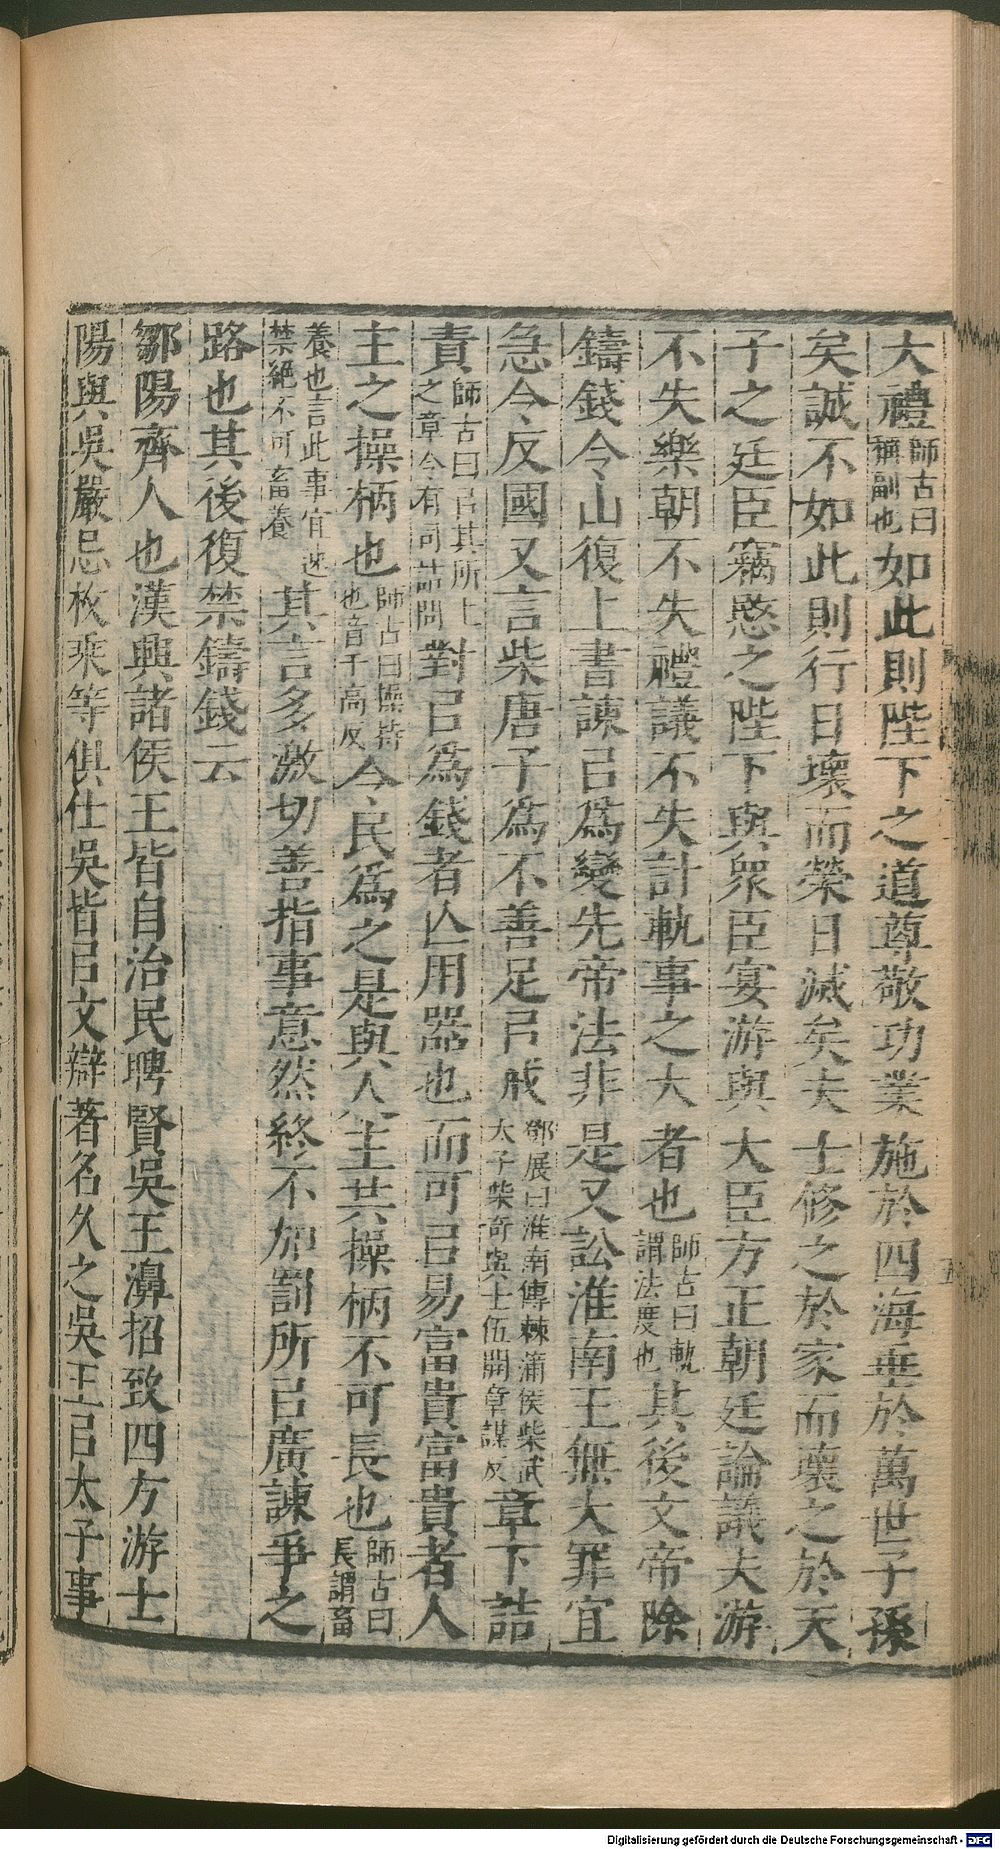 大禮師古曰稱副也如此則陛下之道尊敬功業施於四海垂於萬世子孫
矣誠不如此則行日壞而榮日滅矣夫士修之於家而壞之於天
子之廷臣竊愍之陛下與衆臣宴游與大臣方正朝廷論議夫游
不失樂朝不失禮議不失計軌事之大者也師古曰軌謂法度也其後文帝除
鑄錢令山復上書諫㠯爲變先帝法非是又訟淮南王無大罪宜
急令反國又言柴唐子爲不善足㠯戒鄧展曰淮南傳棘蒲侯柴武太子柴奇與士伍開章謀反章下詰
責師古曰㠯其所上之章令有司詰問對㠯爲錢者亾用器也而可㠯易富貴富貴者人
主之操柄也師古曰操持也音千高反令民爲之是與人主共操柄不可長也師古曰長謂畜
養也言此事宜速禁絕不可畜養其言多激切善指事意然終不加罰所㠯廣諫爭之
路也其後復禁鑄錢云
鄒陽齊人也漢興諸侯王皆自治民聘賢吳王濞招致四方游士
陽與吳嚴忌枚乘等俱仕吳皆㠯文辯著名久之吳王㠯太子事
五
Digitalisierung gefördert durch die Deutsche Forschungsgemeinschaft - DFG